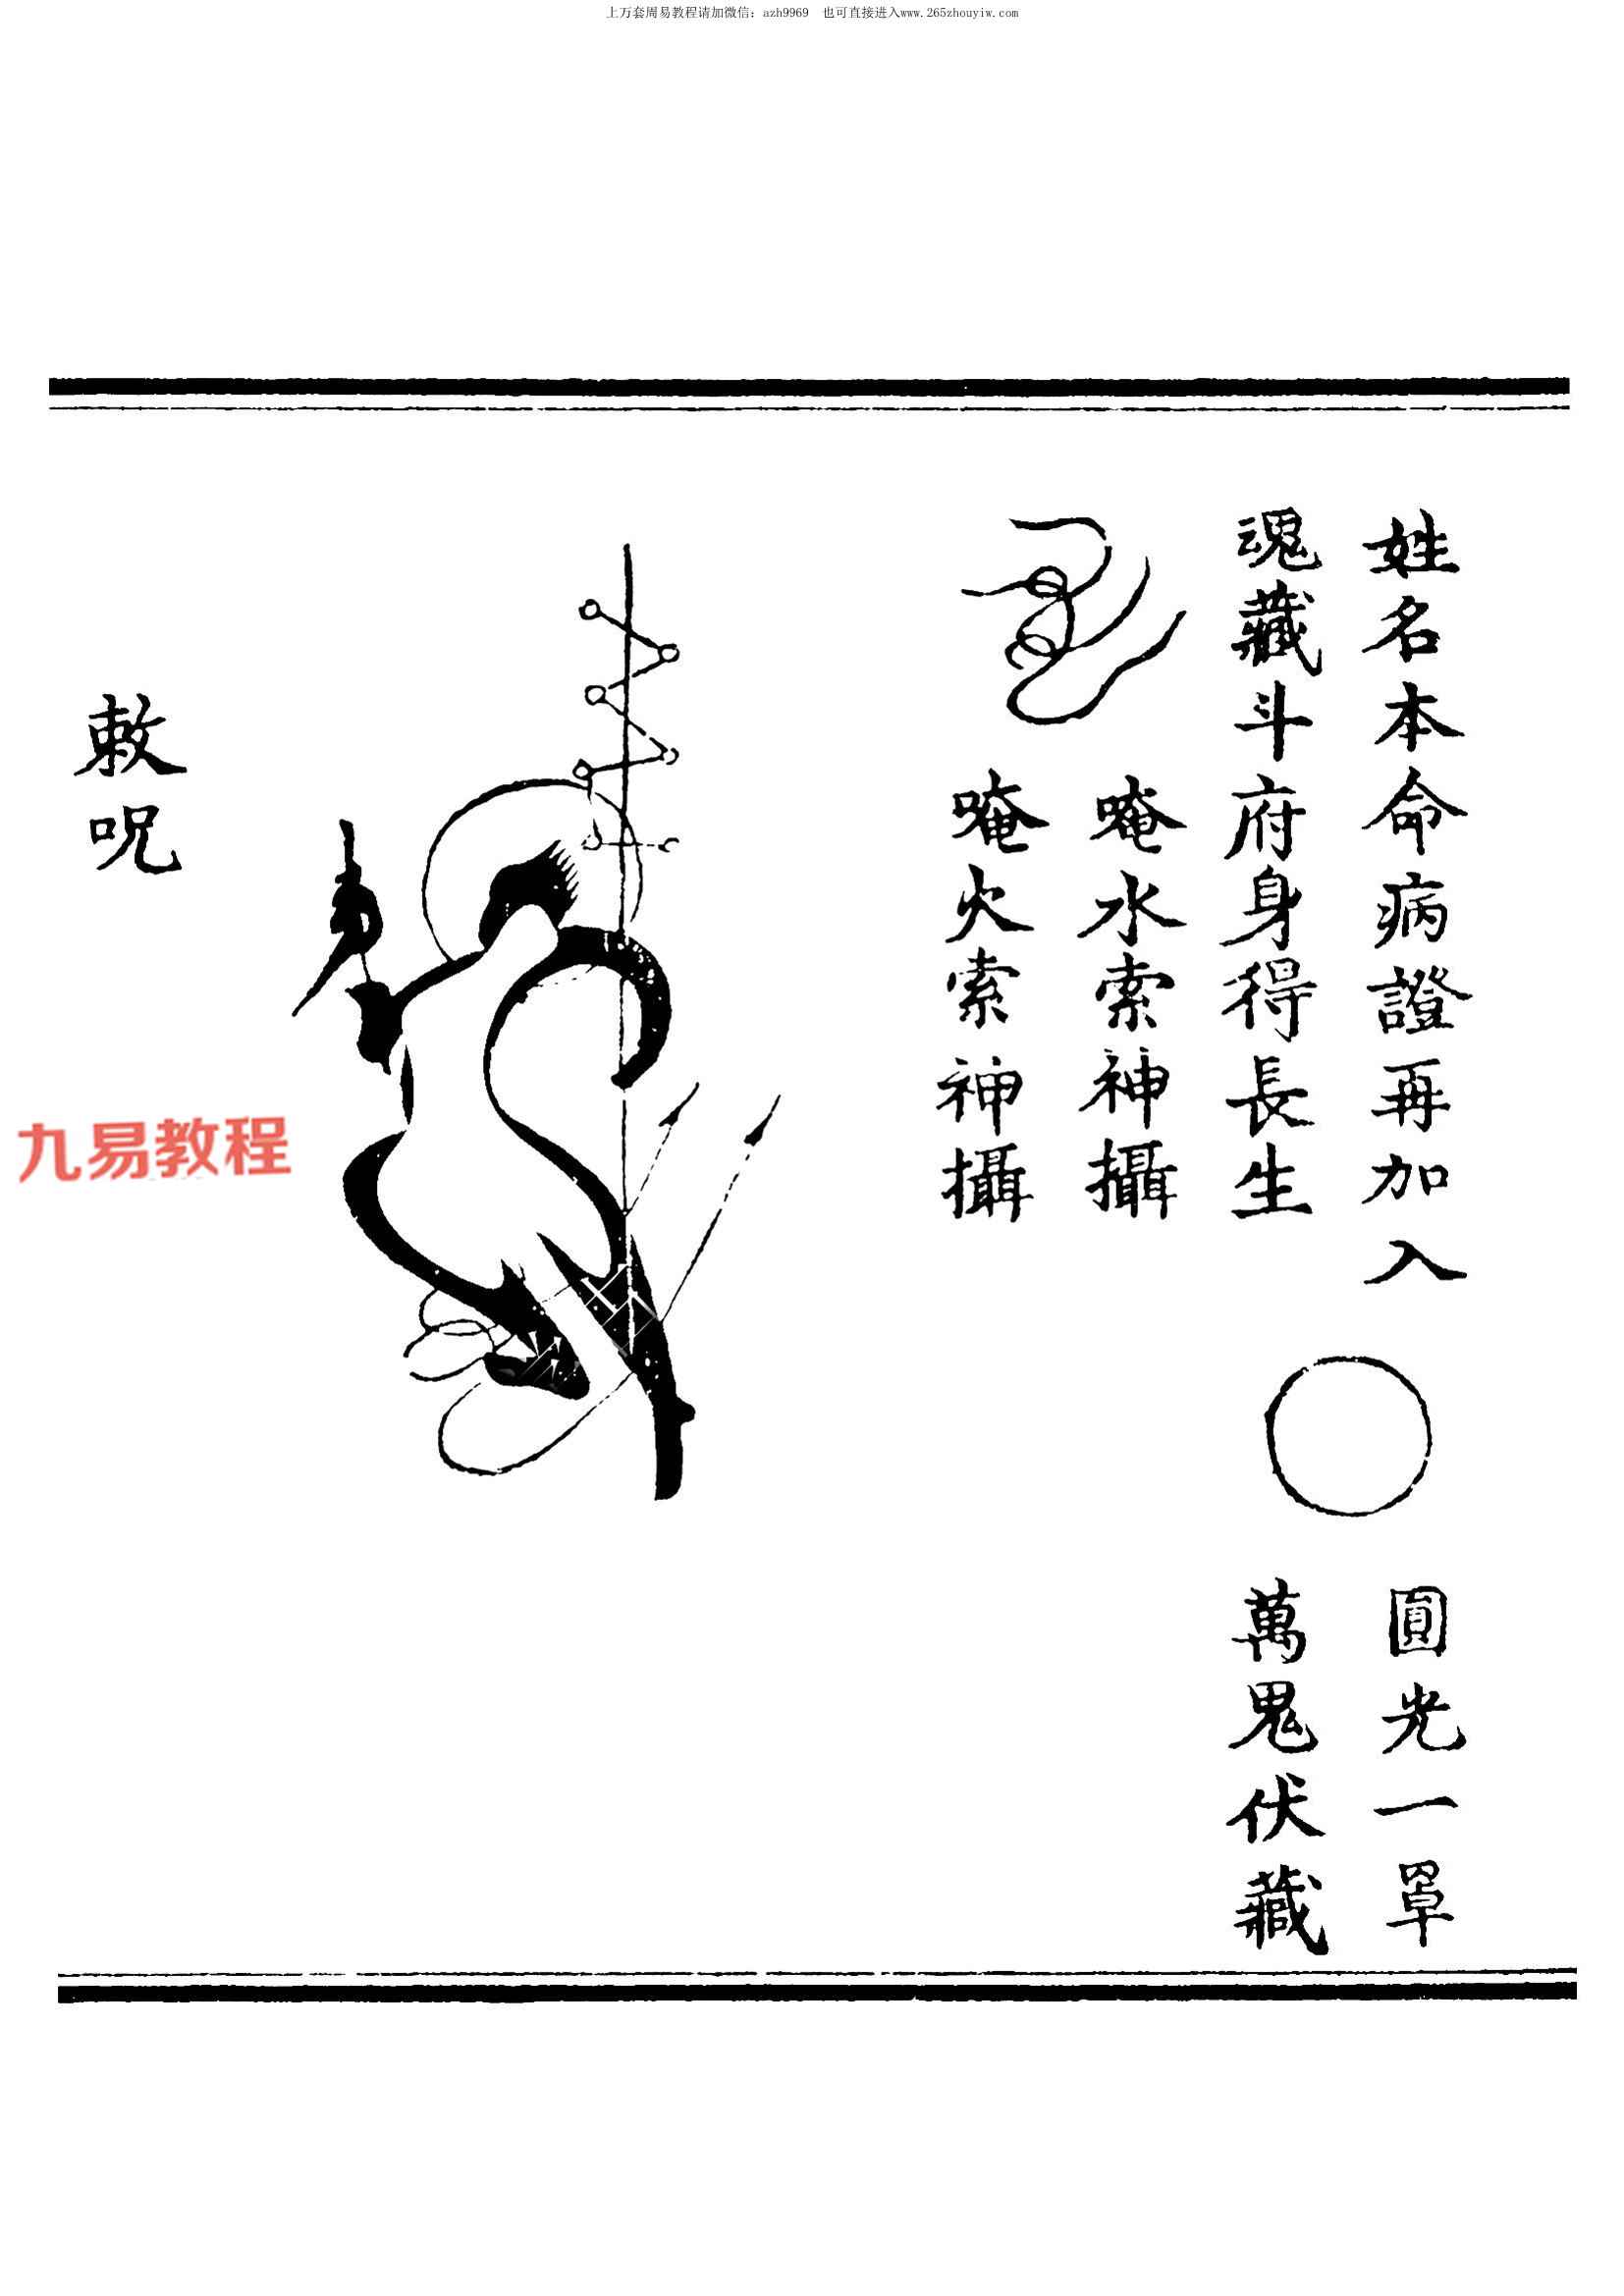 上万套周易教程请加微信：azh9969 也可直接进入www.265zhouyiw.com
姓名本命病證再加入
圓光一罩
魂藏斗府身得長生
萬鬼伏藏
唵水索神攝
唵火索神攝
敕呪
九易教程